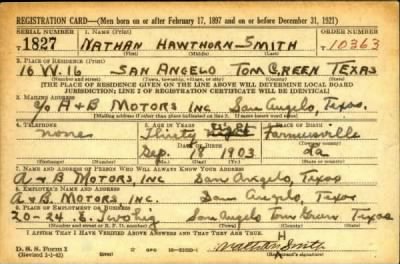 REGISTRATION CARD—(Men born on or after February 17, 1897 and on or before December 31, 1921)
SERIAL NUMBER 1. NAME (Print) ORDER NUMBER
1827 NATHAN HAWTHORN-SMITH 10363
(First) (Middle) (Last)
2. PLACE OF RESIDENCE (Print)
16 W. 16 SAN ANGELO TOM GREEN TEXAS
(Number and street) (Town, township, village, or city) (County) (State)
[THE PLACE OF RESIDENCE GIVEN ON THE LINE ABOVE WILL DETERMINE LOCAL BOARD
JURISDICTION; LINE 2 OF REGISTRATION CERTIFICATE WILL BE IDENTICAL]
3. MAILING ADDRESS
c/o A + B MOTORS INC San Angelo, Texas.
[Mailing address if other than place indicated on line 2. If same insert word same]
4. TELEPHONE 5. AGE IN YEARS 6. PLACE OF BIRTH
none Thirty Eight Farmerville
DATE OF BIRTH (Town or county)
Sep. 18 1903 La
(Exchange) (Number) (Mo.) (Day) (Yr.) (State or country)
7. NAME AND ADDRESS OF PERSON WHO WILL ALWAYS KNOW YOUR ADDRESS
A + B MOTORS, INC San Angelo, Texas
8. EMPLOYER'S NAME AND ADDRESS
A + B MOTORS, INC. San Angelo, Texas
9. PLACE OF EMPLOYMENT OR BUSINESS
20-24 E. Twohig San Angelo Tom Green Texas
(Number and street or R. F. D. number) (Town) (County) (State)
I AFFIRM THAT I HAVE VERIFIED ABOVE ANSWERS AND THAT THEY ARE TRUE.
H
D. S. S. Form 1 Nathan Smith
(Revised 1-1-42) (Registrant's signature)